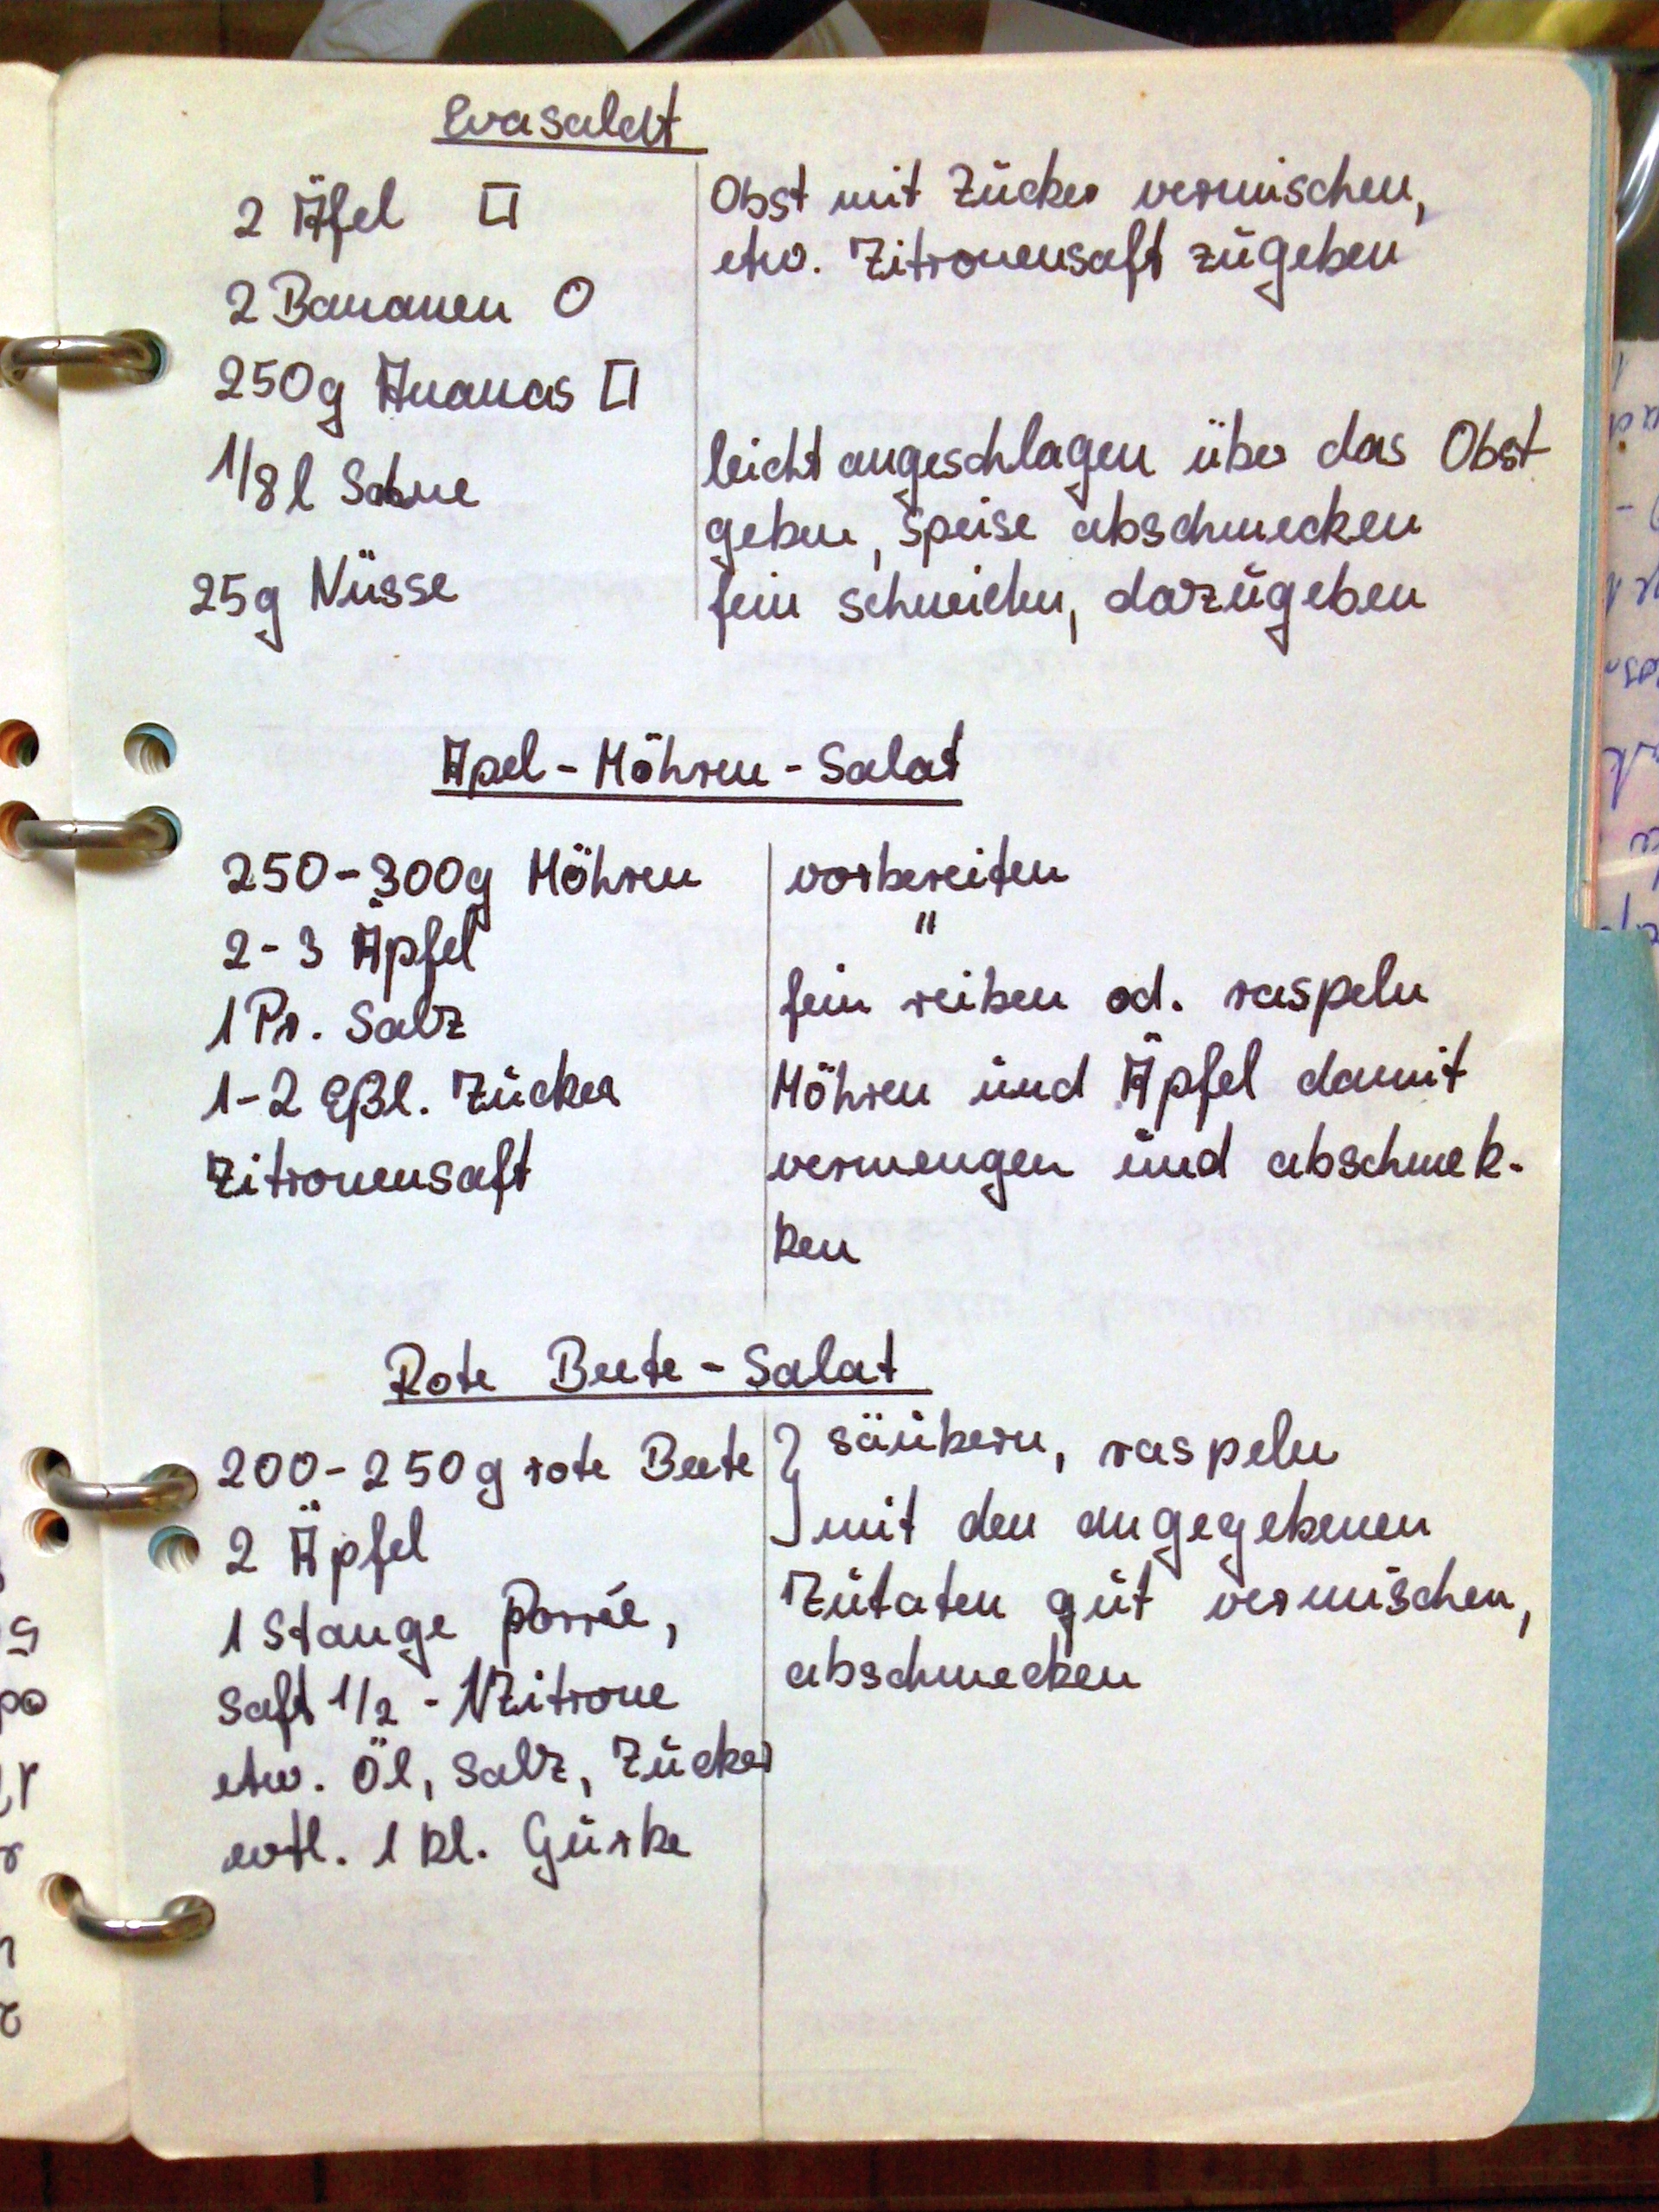 Evasalat
2 Äfel □
2 Bananen O
250g Ananas □
1/8 l Sahne
25g Nüsse
Obst mit Zucker vermischen,
etw. Zitronensaft zugeben
leicht angeschlagen über das Obst
geben, Speise abschmecken
fein schneiden, dazugeben
Apel-Möhren-Salat
250-300g Möhren
2-3 Äpfel
1 Pr. Salz
1-2 Eßl. Zucker
Zitronensaft
vorbereiten
"
fein reiben od. raspeln
Möhren und Äpfel damit
vermengen und abschmek-
ken
Rote Beete-Salat
200-250g rote Beete
2 Äpfel
1 Stange Porrée,
Saft 1/2 - 1 Zitrone
etw. Öl, Salz, Zucker
evtl. 1 kl. Gurke
} säubern, raspeln
mit den angegebenen
Zutaten gut vermischen,
abschmecken